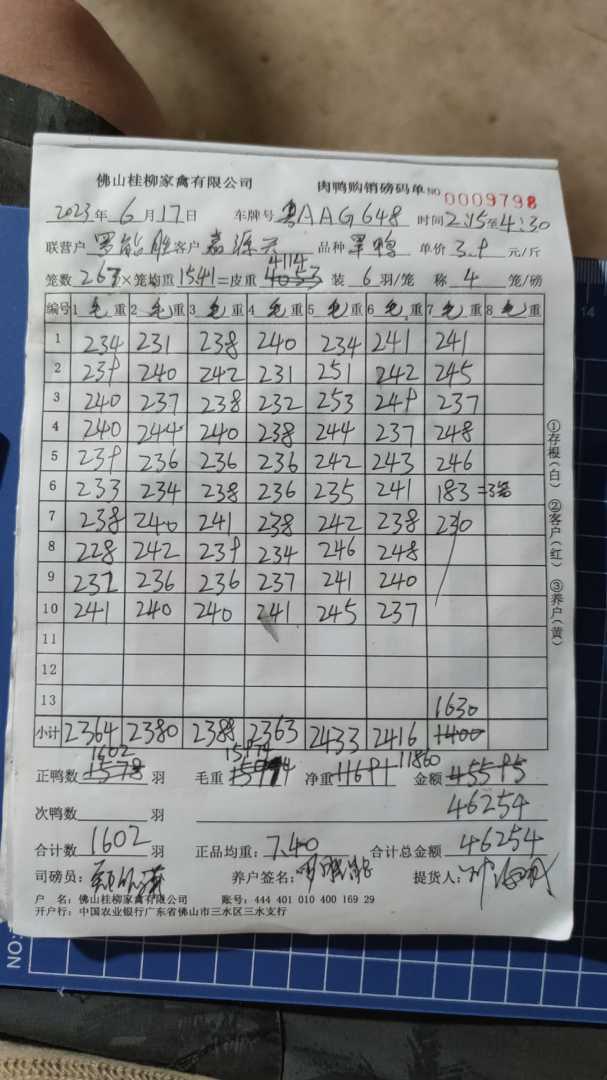 佛山桂柳家禽有限公司 肉鸭购销磅码单 NO 0009798
2023年6月17日 车牌号 粤AAG648 时间2:15至4:30
联营户 罗能胜 客户 嘉源 品种 单价 3.9 元/斤
4114
笼数 267 ×笼均重 15.41 =皮重 4053 装 6 羽/笼 称 4 笼/磅
编号 1 毛 重 2 毛 重 3 毛 重 4 毛 重 5 毛 重 6 毛 重 7 毛 重 8 毛 重
1 234 231 238 240 234 241 241
2 239 240 242 231 251 242 245
3 240 237 238 232 253 249 237
4 240 244 240 238 244 237 248
5 239 236 236 236 242 243 246
6 233 234 238 236 235 241 183 =3笼
7 238 240 241 238 242 238 230
8 228 242 239 234 246 248
9 232 236 236 237 241 240
10 241 240 240 241 245 237
11
12
13
1630
小计 2364 2380 2388 2363 2433 2416 1400
1602 15974 11860
正鸭数 1578 羽 毛重 净重 11691 金额 45595
次鸭数 羽 46254
合计数 1602 羽 正品均重: 7.40 合计总金额 46254
司磅员: 养户签名: 提货人:
户 名: 佛山桂柳家禽有限公司 账号: 444 401 010 400 169 29
开户行: 中国农业银行广东省佛山市三水区三水支行
①存根(白) ②客户(红) ③养户(黄)
14
NO: